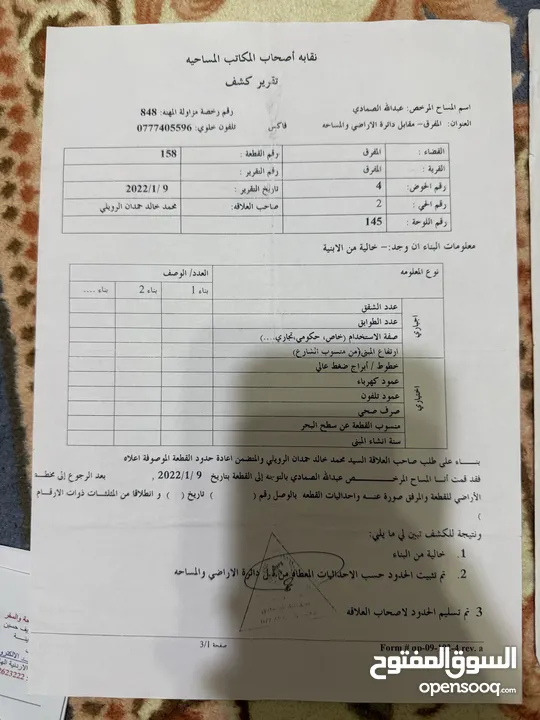 نقابه أصحاب المكاتب المساحيه
تقرير كشف
اسم المساح المرخص: عبدالله الصمادي
رقم رخصة مزاولة المهنه: 848
العنوان: المفرق – مقابل دائرة الاراضي والمساحه
فاكس
تلفون خلوي: 0777405596
القضاء : المفرق
رقم القطعة : 158
القرية : المفرق
رقم التقرير :
رقم الحوض: 4
تاريخ التقرير : 9 /2022/1
رقم الحي : 2
صاحب العلاقه: محمد خالد حمدان الرويلي
رقم اللوحة : 145
معلومات البناء ان وجد:– خالية من الابنية
نوع المعلومه
العدد/ الوصف
بناء 1
بناء 2
بناء ....
اجباري
عدد الشقق
عدد الطوابق
صفة الاستخدام (خاص، حكومي،تجاري،....)
ارتفاع المبنى(من منسوب الشارع)
اختياري
خطوط / أبراج ضغط عالي
عمود كهرباء
عمود تلفون
صرف صحي
منسوب القطعة عن سطح البحر
سنة انشاء المبنى
بناء على طلب صاحب العلاقة السيد محمد خالد حمدان الرويلي والمتضمن اعادة حدود القطعة الموصوفة اعلاه
فقد قمت أنا المساح المرخص عبدالله الصمادي بالتوجه إلى القطعة بتاريخ 9 /2022/1 , بعد الرجوع إلى مخطط
الأراضي للقطعة والمرفق صورة عنه واحداثيات القطعه بالوصل رقم ( ) تاريخ ( ) و انطلاقا من المثلثات ذوات الارقام
)
ونتيجة للكشف تبين لي ما يلي:
1. خالية من البناء
2. تم تثبيت الحدود حسب الاحداثيات المعطاه من قبل دائرة الاراضي والمساحه
3 تم تسليم الحدود لاصحاب العلاقه
صفحة 3/1
rev. a
السوق المفتوح
opensooq.com